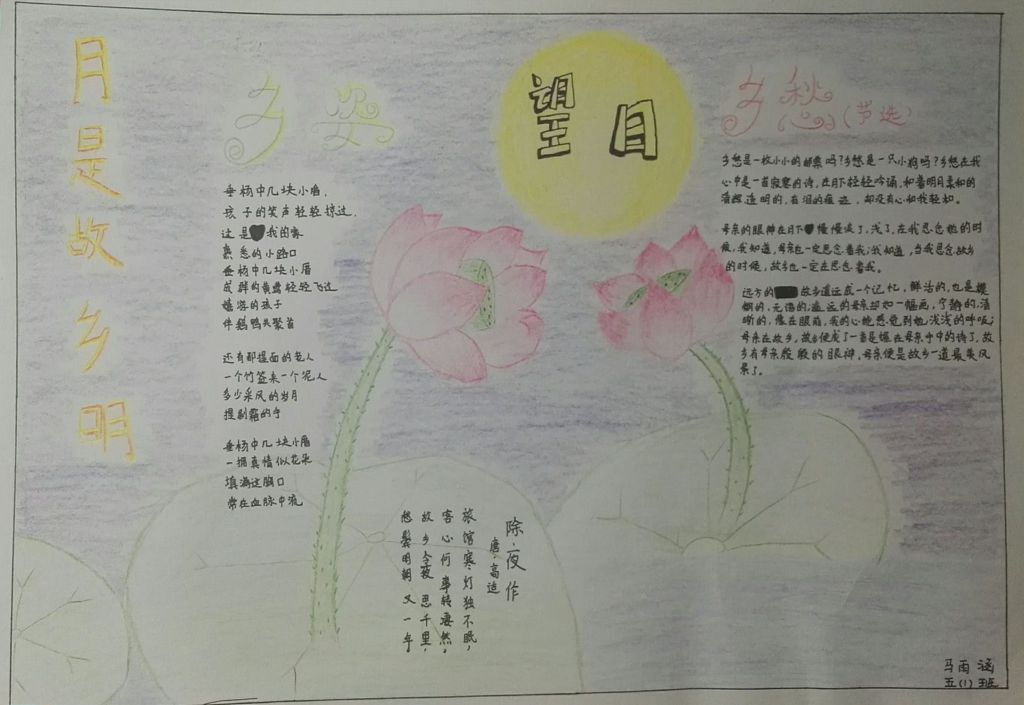 月是故乡明
乡姿
垂杨中几块小唇，
孩子的笑声轻轻掠过，
这是我的家
熟悉的小路口
垂杨中几块小唇
成群的黄鹂轻轻飞过
嬉游的孩子
伴鹅鸭共聚首
还有那提面的老人
一个竹签来一个泥人
多少采风的岁月
提剔霜的手
垂杨中几块小唇
一拥真情似花朵
填满这胸口
常在血脉中流
望月
乡愁(节选)
乡愁是一枚小小的邮票吗?乡愁是一只小狗吗?乡愁在我
心中是一首寂寞的诗，在月下轻轻吟诵，和着明月柔和的
清辉 透明的，有泪的痕迹，却没有心和我轻和。
母亲的眼神在月下慢慢淡了，浅了，在我思念她的时
候，我知道，母亲也一定思念着我；我知道，当我思念故乡
的时候，故乡也一定在思念着我。
远方的故乡遥远成一个记忆，鲜活的，也是模
糊的，无语的；遥远的母亲却如一幅画，宁静的，清
晰的，像在眼前，我的心能感觉到她浅浅的呼吸；
母亲在故乡，故乡便成了一首是握在母亲手中的诗了，故
乡有母亲殷殷的眼神，母亲便是故乡一道最美风
景了。
除夜作
唐·高适
旅馆寒灯独不眠，
客心何事转凄然。
故乡今夜思千里，
愁鬓明朝又一年。
马雨涵
五(1)班